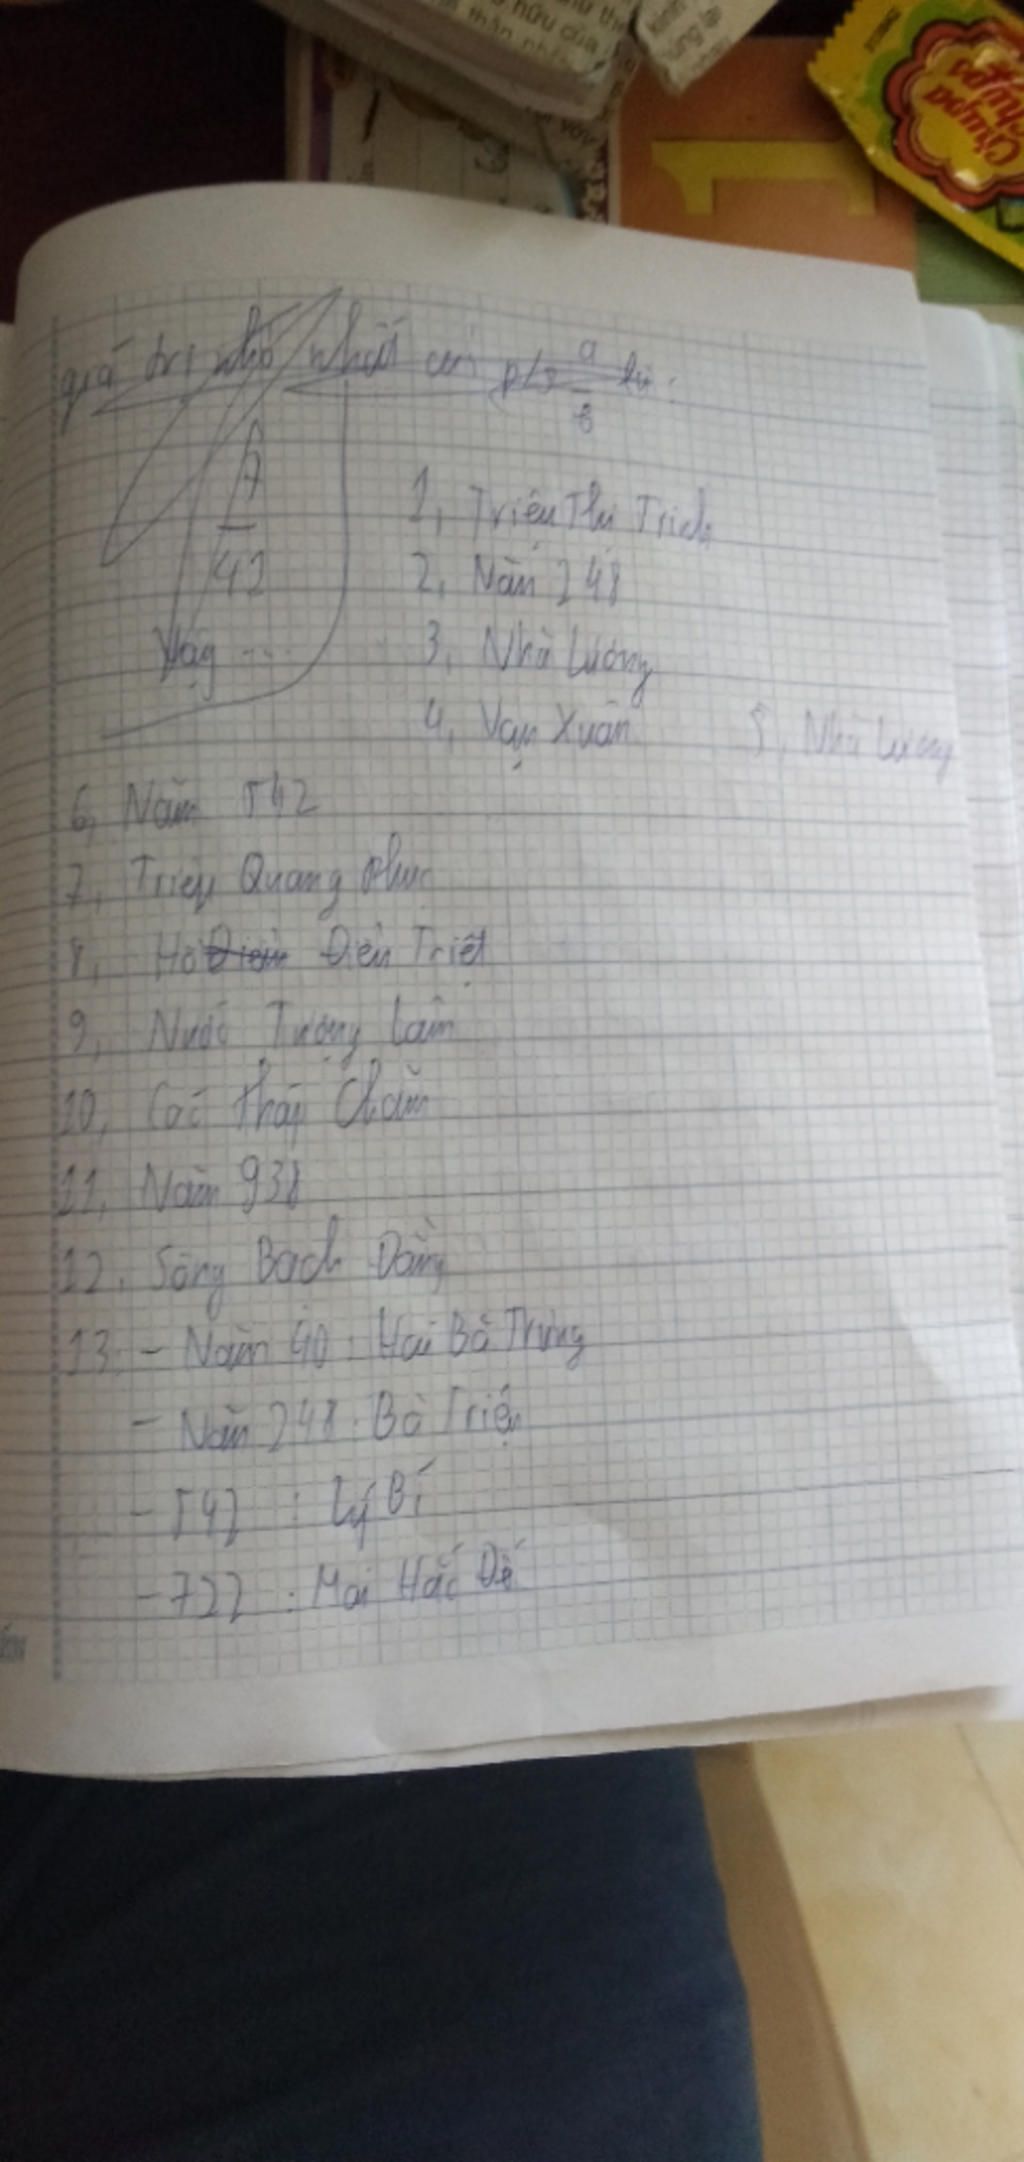 hữu của
giá trị nhỏ nhất của p/s a/b là:
17
42
Vậy ...
1, Triệu Thị Trinh
2, Năm 248
3, Nhà Lương
4, Vạn Xuân
5, Nhà Lương
6, Năm 542
7, Triệu Quang Phục
8, Hồ Điển Triệt
9, Nước Tượng Lâm
10, Các tháp Chăm
11, Năm 938
12, Sông Bạch Đằng
13, - Năm 40 : Hai Bà Trưng
- Năm 248 : Bà Triệu
- 542 : Lý Bí
- 722 : Mai Hắc Đế
Chupa Chups
1